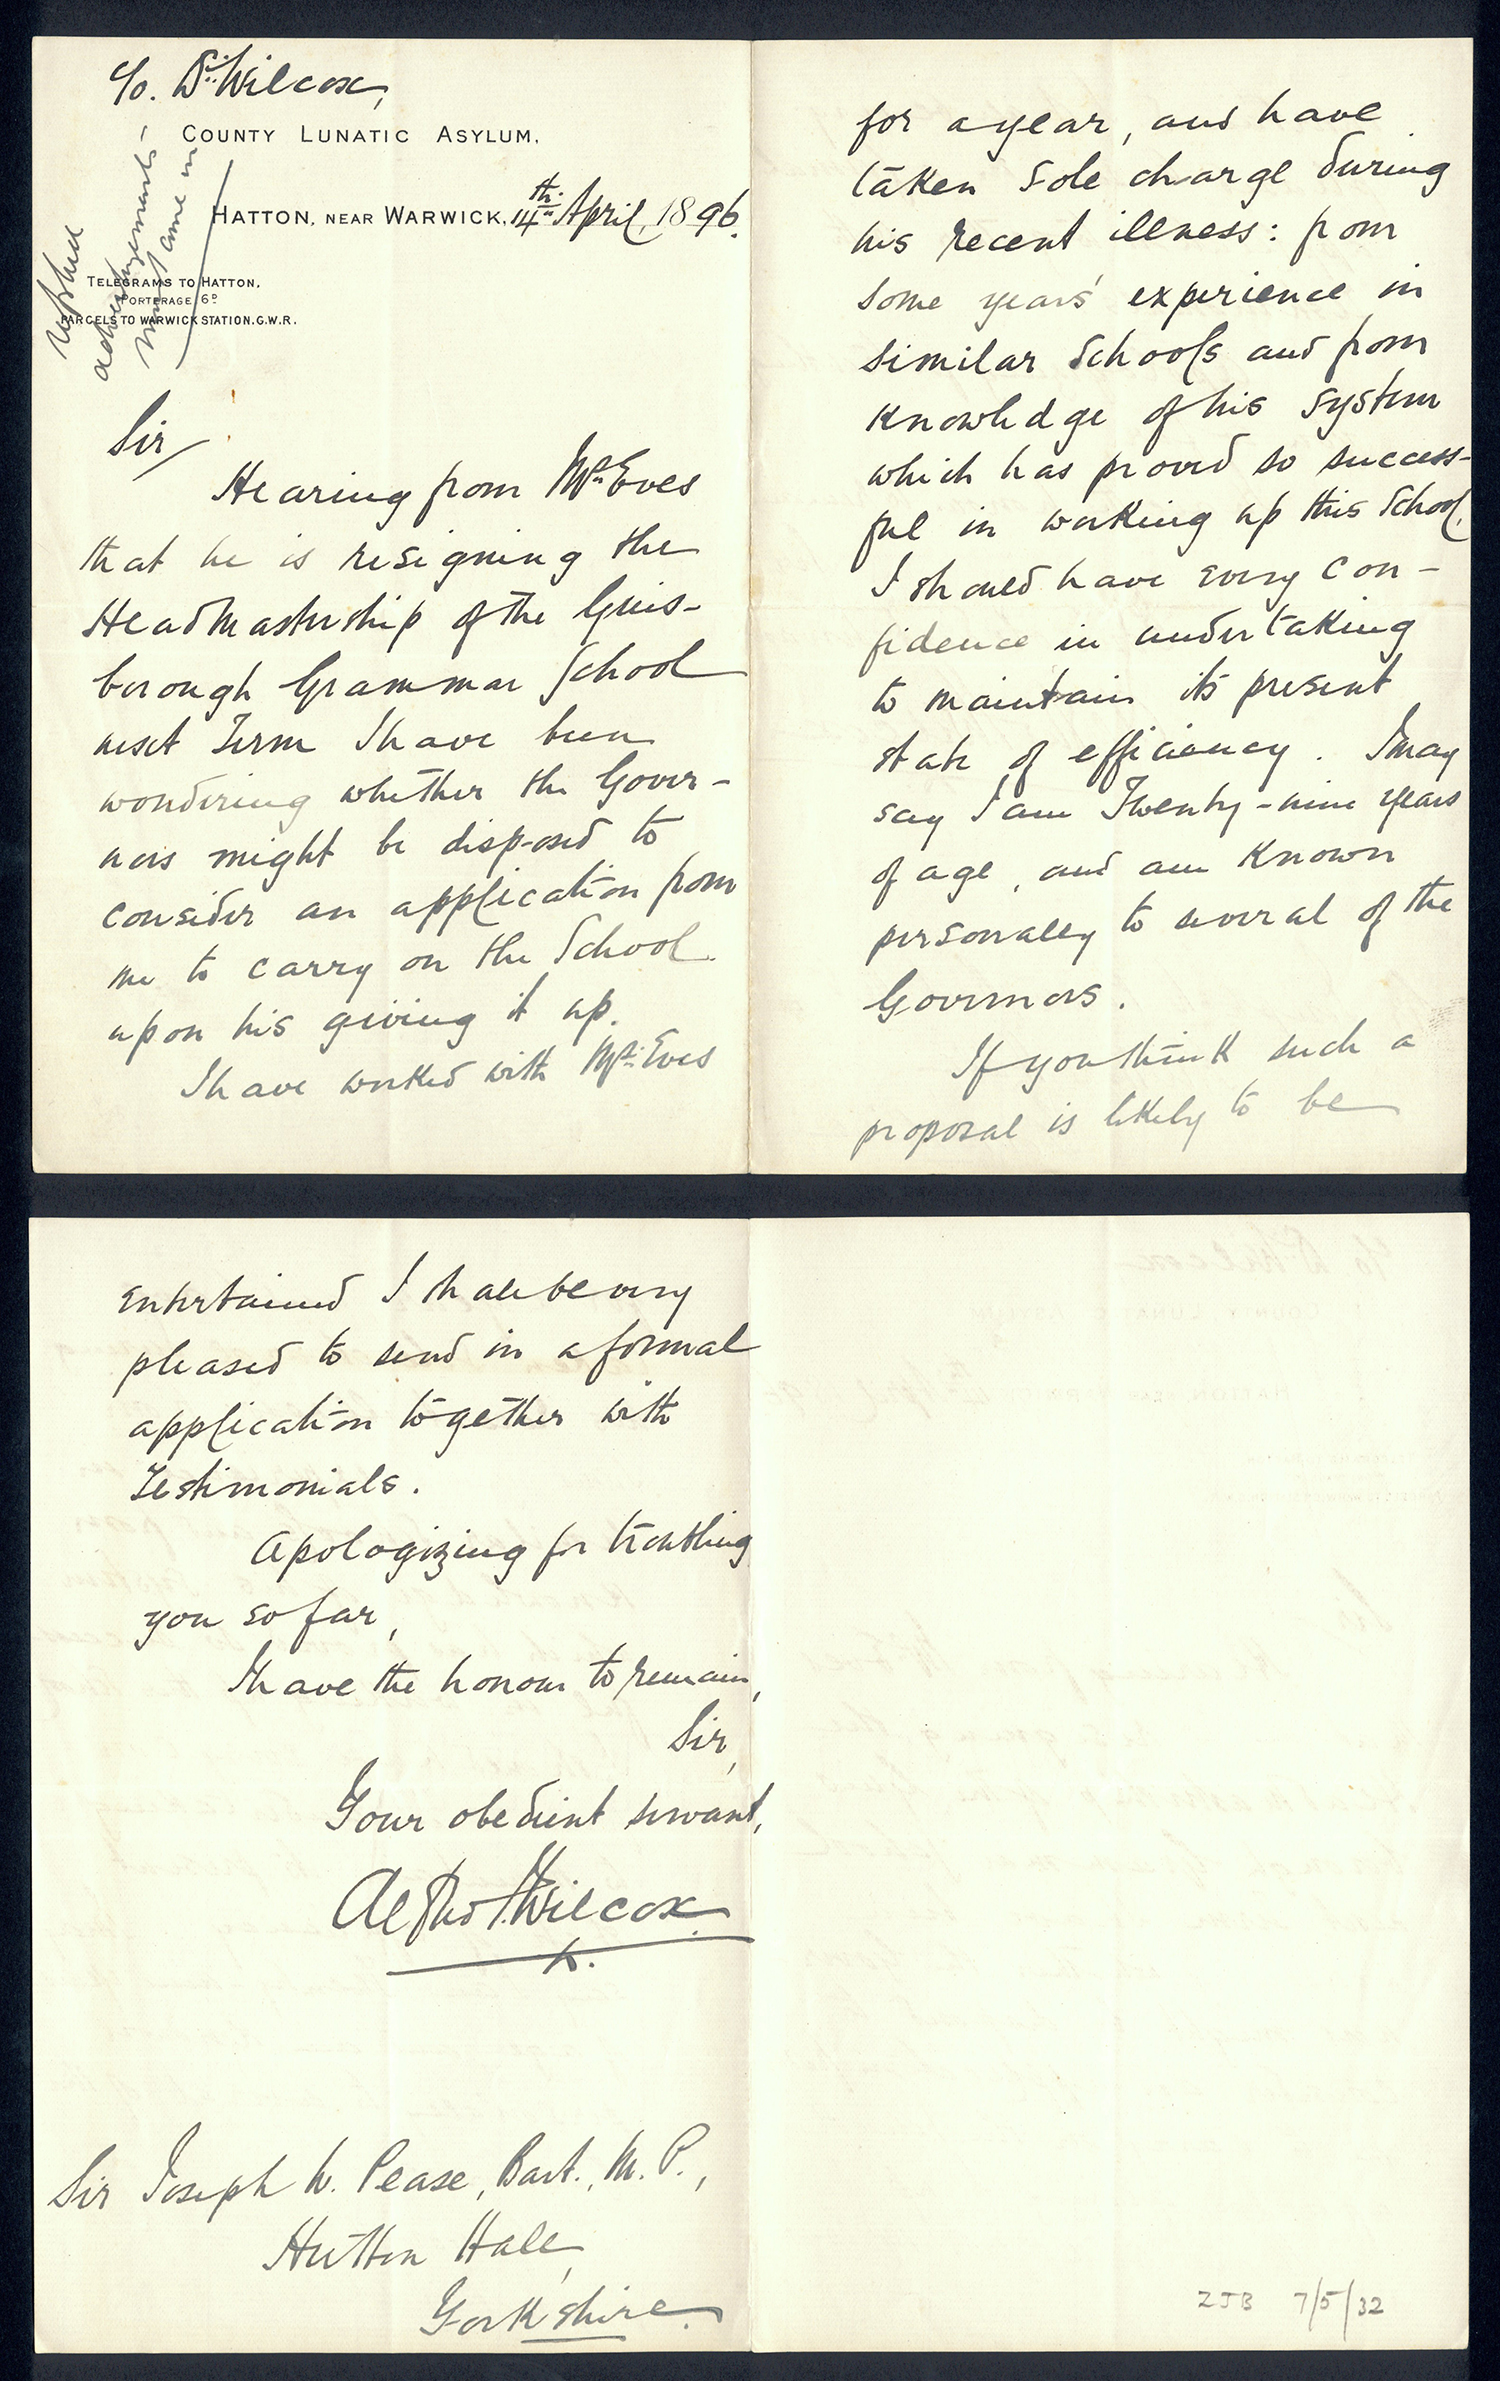 c/o. Dr. Wilcox,
COUNTY LUNATIC ASYLUM,
HATTON, NEAR WARWICK, 14th April, 1896.
TELEGRAMS TO HATTON.
PORTERAGE 6D
PARCELS TO WARWICK STATION. G.W.R.
Replied
advertizements -
must come in
Sir/
Hearing from Mr. Eves
that he is resigning the
Headmastership of the Guis-
borough Grammar School
next Term I have been
wondering whether the Gover-
nors might be disposed to
consider an application from
me to carry on the School
upon his giving it up.
I have worked with Mr. Eves
for a year, and have
taken sole charge during
his recent illness: from
some years' experience in
similar Schools and from
knowledge of his system
which has proved so success-
ful in working up this School,
I should have every con-
fidence in undertaking
to maintain its present
state of efficiency. I may
say I am Twenty-nine years
of age, and am known
personally to several of the
Governors.
If you think such a
proposal is likely to be
entertained I shall be very
pleased to send in a formal
application together with
Testimonials.
Apologizing for troubling
you so far,
I have the honour to remain,
Sir,
Your obedient servant,
Alfred Wilcox
Sir Joseph W. Pease, Bart., M.P.,
Hutton Hall,
Yorkshire.
ZJB 7/5/32